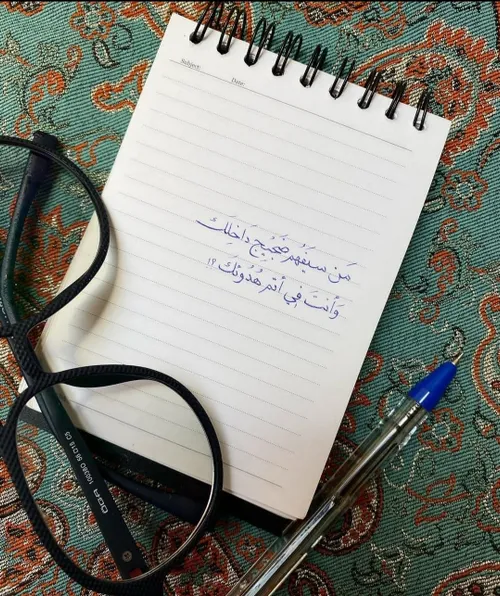 Subject:
Date:
مَن سيَفهَم ضَجيج دَاخِلَك
وَأنتَ فِي أتم هُدُوئكَ ؟!